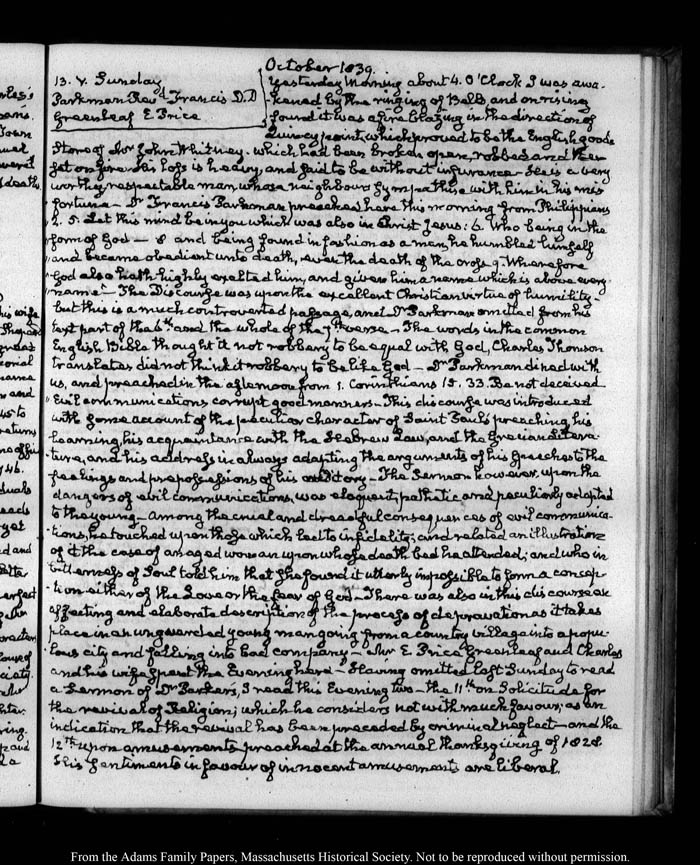 October 1839.
13. V. Sunday
Parkman Revd. Francis D.D
Greenleaf E Price
Yesterday Morning about 4. O'Clock I was awa-
kened by the ringing of Bells, and on rising
found it was a fire blazing in the direction of
Quincy point, which proved to be the English goods
Store of Mr John Whitney, which had been broken open, robbed and then
set on fire. His loss is heavy, and said to be without insurance. He is a very
worthy respectable man, whose neighbours sympathise with him in his mis
fortune – Dr Francis Parkman preached here this morning from Philippians
2. 5. Let this mind be in you which was also in Christ Jesus: 6. Who being in the
form of God – 8 and being found in fashion as a man, he humbled himself
and became obedient unto death, even the death of the cross 9. Wherefore
God also hath highly exalted him, and given him a name which is above every
name" – The Discourse was upon the excellent Christian virtue of humility –
but this is a much controverted passage, and Dr Parkman omitted from his
text part of the 6th and the whole of the 7th verse – The words in the common
English Bible thought it not robbery to be equal with God, Charles Thomson
translates did not think it robbery to be like God – Dr Parkman dined with
us, and preached in the afternoon from 1. Corinthians 15. 33. Be not deceived
Evil communications corrupt good manners – This discourse was introduced
with some account of the peculiar character of Saint Paul's preaching, his
learning, his acquaintance with the Hebrew Law, and the Grecian Litera-
ture, and his address in always adapting the arguments of his speeches to the
feelings and prepossessions of his auditory – The Sermon however, upon the
dangers of evil communications, was eloquent, pathetic and peculiarly adapted
to the young – Among the cruel and dreadful consequences of evil communica-
tions, he touched upon those which lead to infidelity; and related an illustration
of it the case of an aged woman upon whose death bed he attended; and who in
bitterness of Soul told him that she found it utterly impossible to form a concep-
tion either of the Love or the fear of God – There was also in this discourse an
affecting and elaborate description of the process of depravation as it takes
place in an unguarded young man going from a country village into a popu-
lous city and falling into bad company – Mr E. Price Greenleaf and Charles
and his wife spent the Evening here – Having omitted last Sunday to read
a Sermon of Dr Parker's, I read this Evening two – the 11th on Solicitude for
the revival of Religion; which he considers not with much favour, as an
indication that the revival has been preceded by criminal neglect – and the
12th upon amusements preached at the annual thanksgiving of 1828.
His sentiments in favour of innocent amusements are liberal.
From the Adams Family Papers, Massachusetts Historical Society. Not to be reproduced without permission.